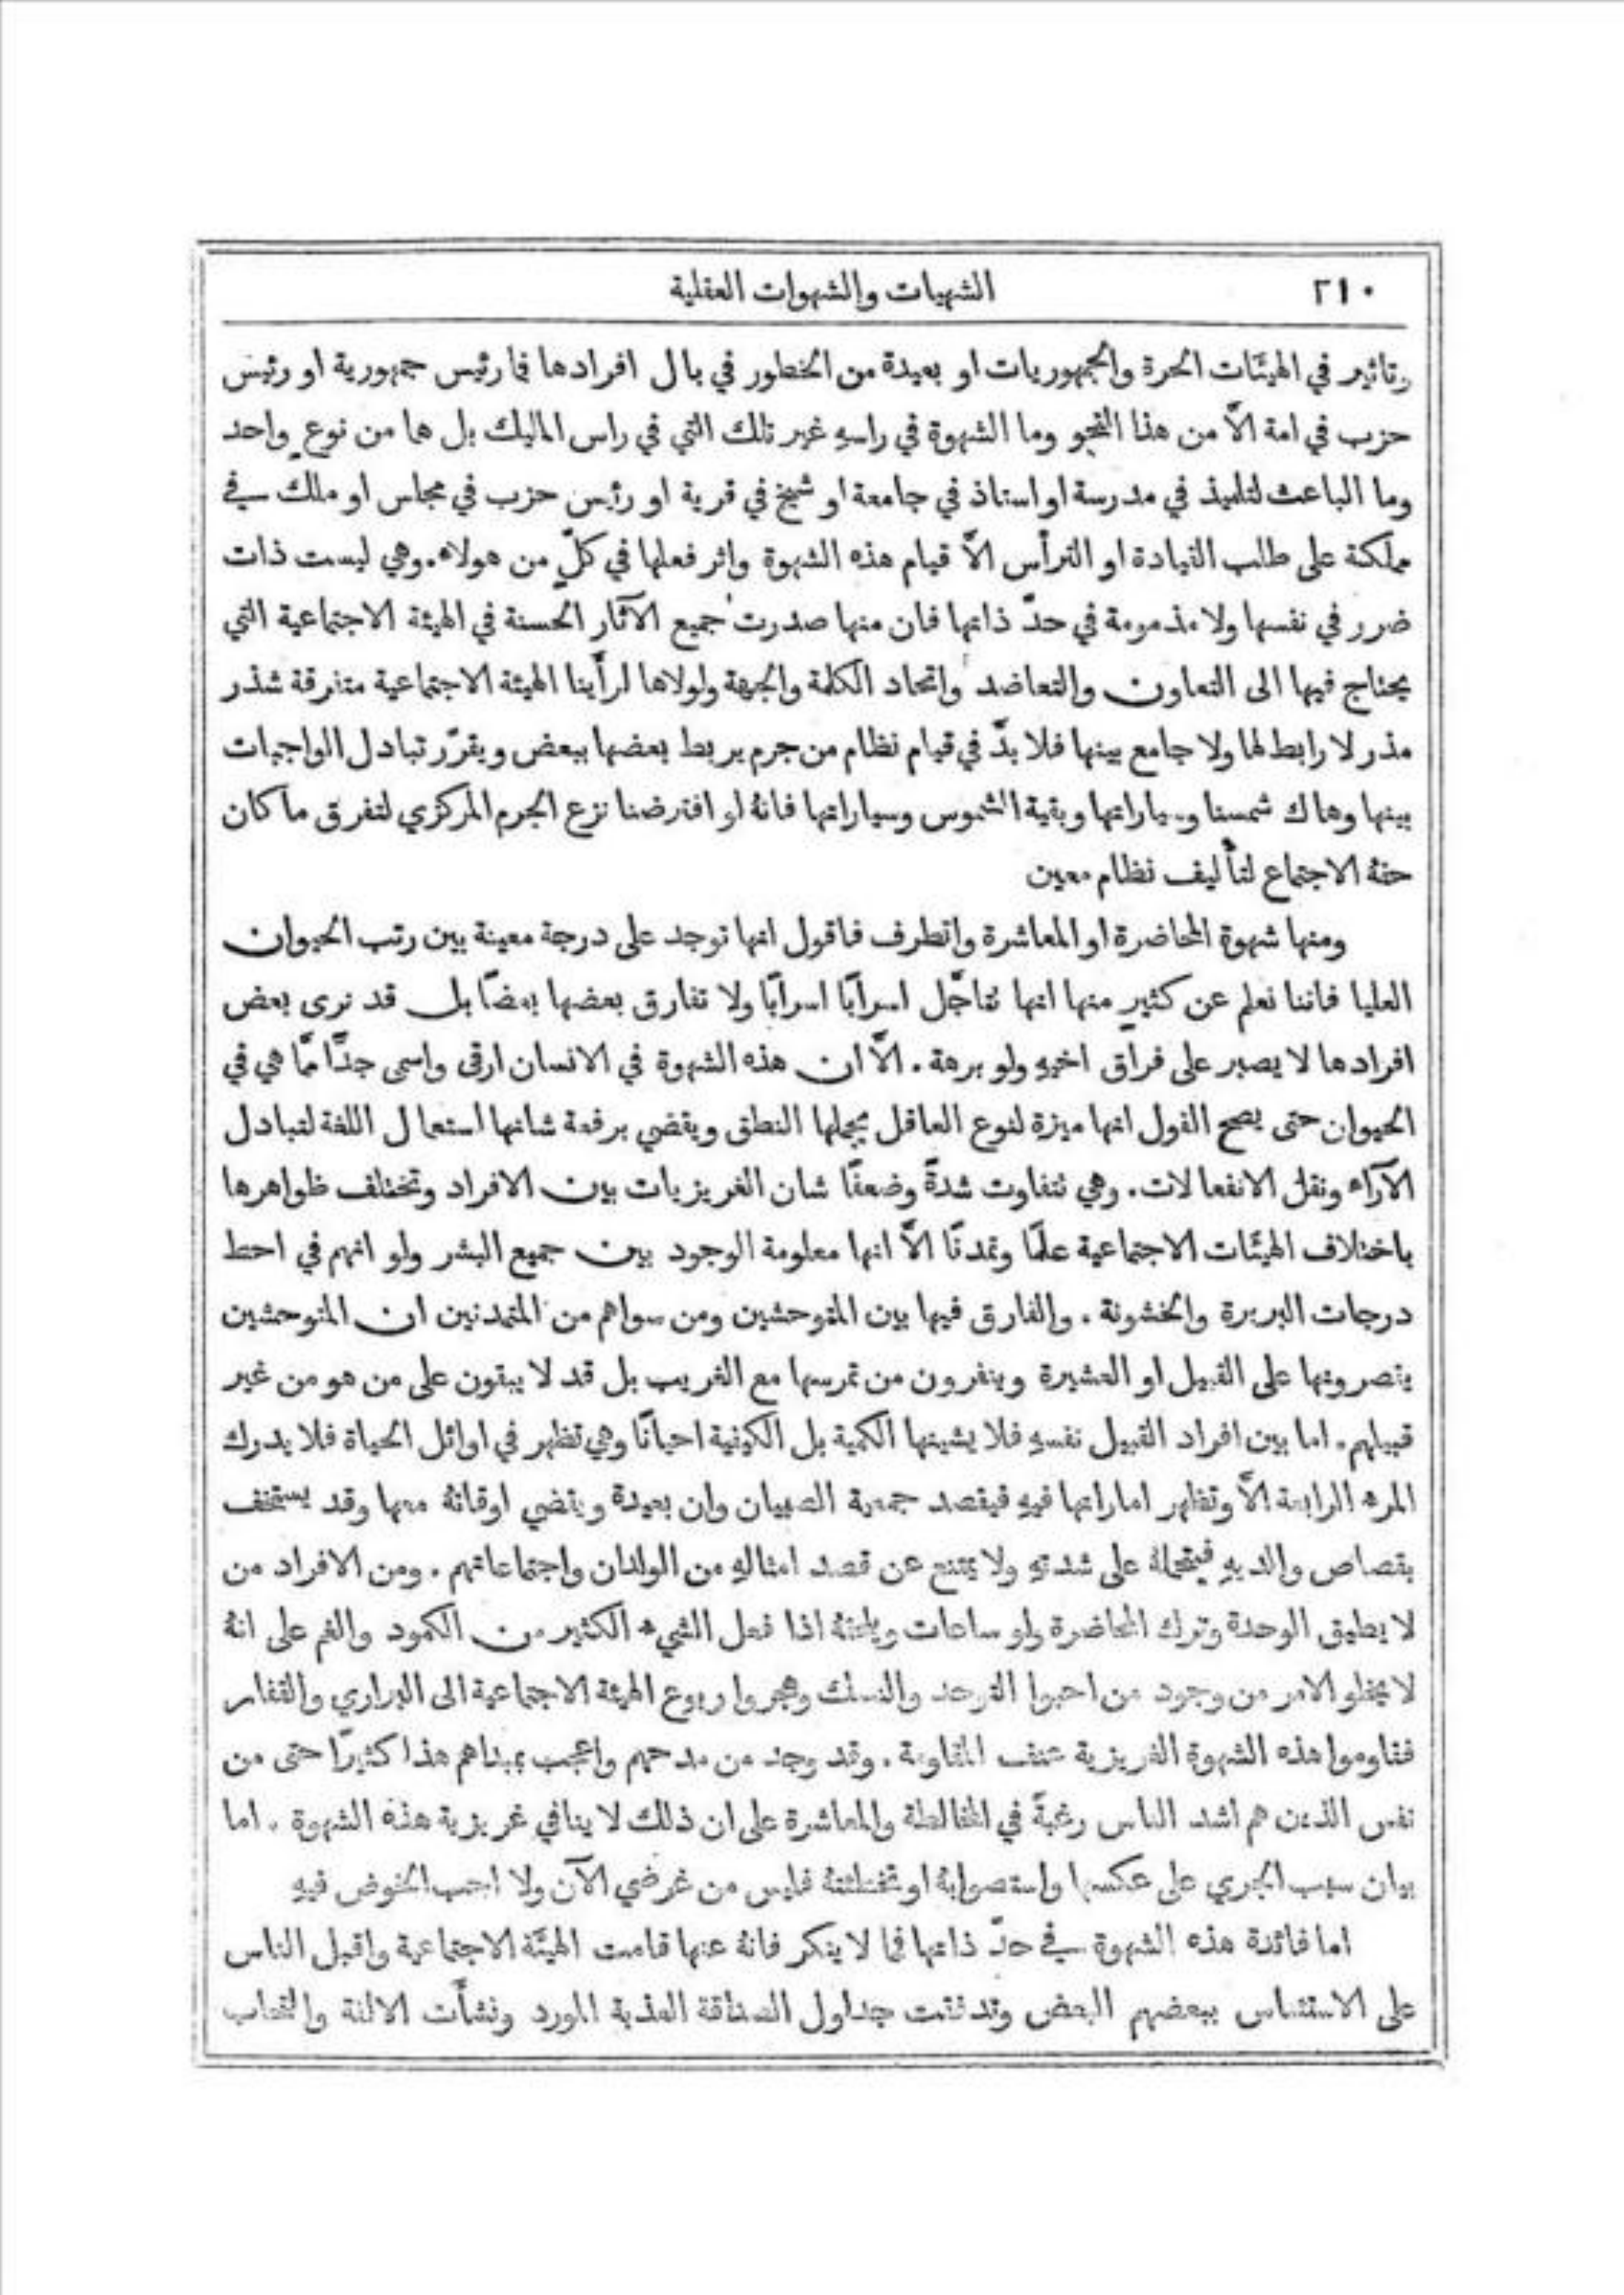 ٢١٠
الشهيات والشهوات العقلية
وتاثير في الهيئات الحرة والجمهوريات او بعيدة من الخطور في بال افرادها فما رئيس جمهورية او رئيس
حزب في امة الَّا من هذا النحو وما الشهوة في راسهِ غير تلك التي في راس المليك بل هما من نوعٍ واحد
وما الباعث لتلميذ في مدرسة او استاذ في جامعة او شيخ في قرية او رئيس حزب في مجلس او ملك في
مملكة على طلب القيادة او الترأُس الَّا قيام هذه الشهوة واثر فعلها في كلٍّ من هولاء. وهي ليست ذات
ضرر في نفسها ولا مذمومة في حدّ ذاتها فان منها صدرت جميع الآثار الحسنة في الهيئة الاجتماعية التي
يحتاج فيها الى التعاون والتعاضد واتحاد الكلمة والجهة ولولاها لرأَينا الهيئة الاجتماعية متفرقة شذر
مذر لا رابط لها ولا جامع بينها فلا بدَّ في قيام نظام من جرم يربط بعضها ببعض ويقرّر تبادل الواجبات
بينها وهاك شمسنا وسياراتها وبقية الشموس وسياراتها فانهُ لو افترضنا نزع الجرم المركزي لتفرق ما كان
حقهُ الاجتماع لتأْليف نظام معين
ومنها شهوة المحاضرة او المعاشرة واتطرف فاقول انها توجد على درجة معينة بين رتب الحيوان
العليا فاننا نعلم عن كثيرٍ منها انها تتاجَّل اسرابًا اسرابًا ولا تفارق بعضها بعضًا بل قد نرى بعض
افرادها لا يصبر على فراق اخيهِ ولو برهة. الَّا ان هذه الشهوة في الانسان ارقى واسمى جدًّا ممَّا هي في
الحيوان حتى يصح القول انها ميزة لنوع العاقل يجملها النطق ويقضي برفعة شانها استعمال اللغة لتبادل
الآراء ونقل الانفعالات. وهي تتفاوت شدةً وضعفًا شان الغريزيات بين الافراد وتختلف ظواهرها
باختلاف الهيئَات الاجتماعية علمًا وتمدنًا الَّا انها معلومة الوجود بين جميع البشر ولو انهم في احط
درجات البربرة والخشونة. والفارق فيها بين المتوحشين ومن سواهم من المتمدنين ان المتوحشين
يقصرونها على القبيل او العشيرة وينفرون من تمرسها مع الغريب بل قد لا يبقون على من هو من غير
قبيلهم. اما بين افراد القبيل نفسهِ فلا يشينها الكمية بل الكيفية احيانًا وهي تظهر في اوائل الحياة فلا يدرك
المرء الرابعة الَّا وتظهر اماراتها فيهِ فيقصد جمعية الصبيان وان بعيدة ويقضي اوقاتهُ معها وقد يستخف
بقصاص والديهِ فيتحملهُ على شدتهِ ولا يمتنع عن قصد امثالهِ من الولدان واجتماعاتهم. ومن الافراد من
لا يطيق الوحدة وترك المحاضرة ولو ساعات ويلحقهُ اذا فعل الشيء الكثير من الكمود والغم على انهُ
لا يخلو الامر من وجود من احبوا التوحد والنسك وهجروا ربوع الهيئة الاجتماعية الى البراري والقفار
فقاوموا هذه الشهوة الغريزية عنف المقاومة. وقد وجد من مدحهم واعجب بمبداهم هذا كثيرًا حتى من
نفس الذين هم اشد الناس رغبةً في المخالطة والمعاشرة على ان ذلك لا ينافي غريزية هذه الشهوة. اما
بيان سبب الجري على عكسها واستصوابهُ او تخطئتهُ فليس من غرضي الآن ولا احب الخوض فيهِ
اما فائدة هذه الشهوة في حدّ ذاتها فما لا ينكر فانهُ عنها قامت الهيئَة الاجتماعية واقبل الناس
على الاستئناس ببعضهم البعض وتدفقت جداول الصداقة العذبة المورد ونشأَت الالفة والتحاب